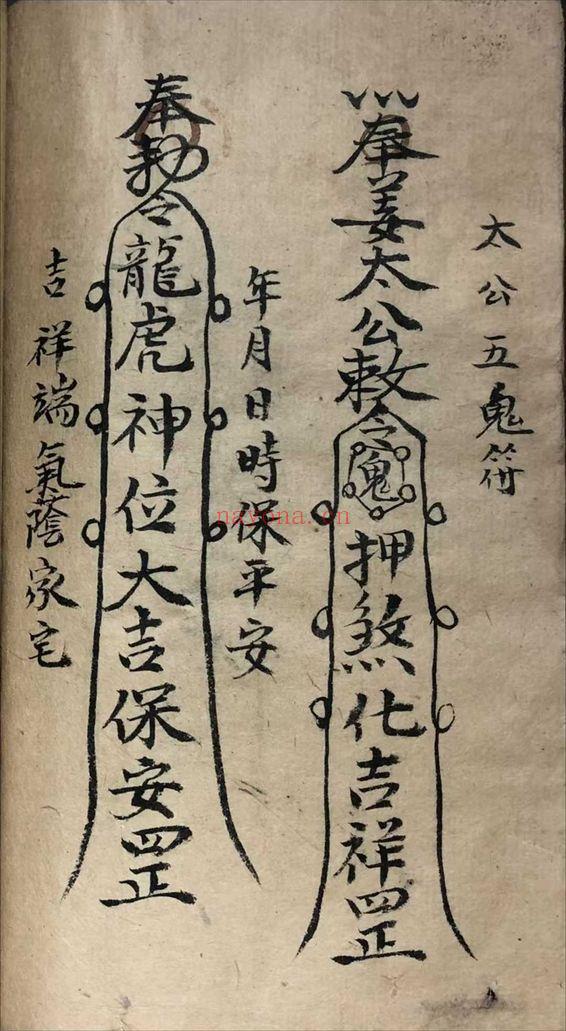 太公五鬼符
奉姜太公敕令鬼押煞化吉祥罡
年月日時保平安
奉勅令龍虎神位大吉保安罡
吉祥端氣蔭家宅
nayona.cn